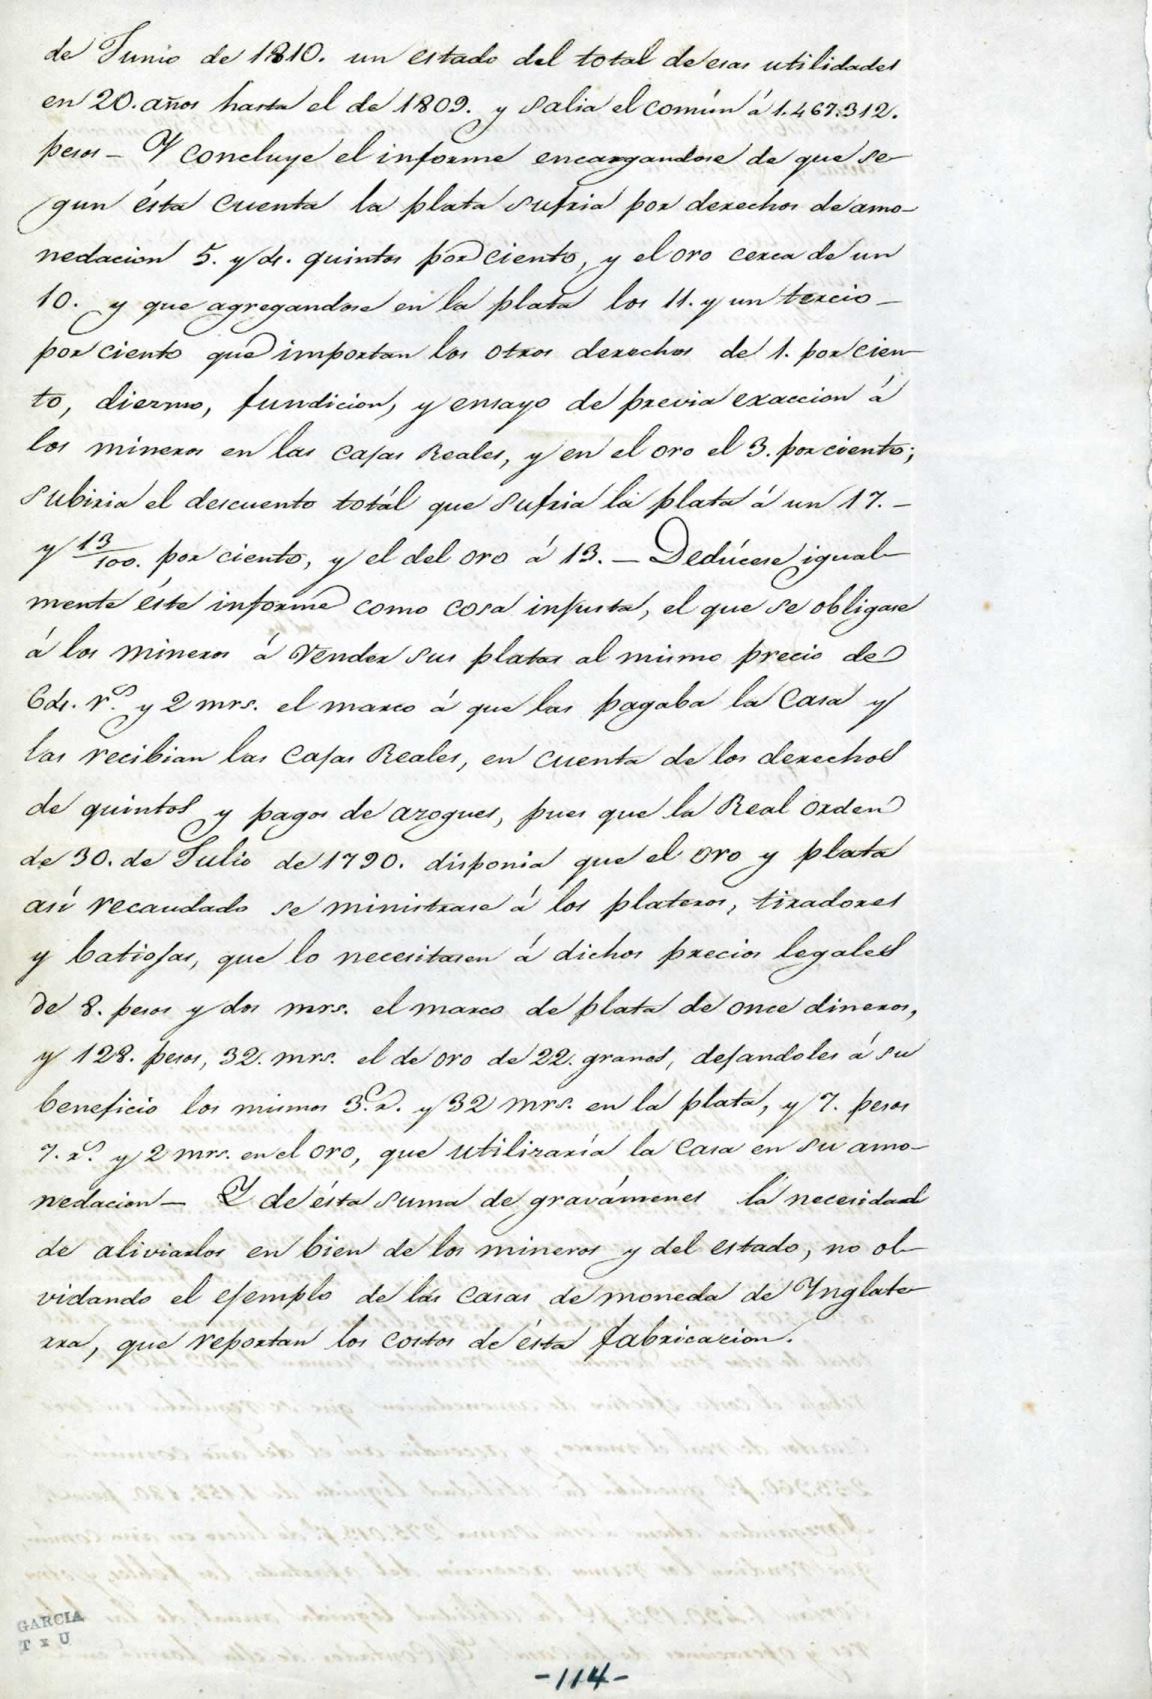 de Junio de 1810. un estado del total de esas utilidades
en 20. años hasta el de 1809. y salia el común á 1.467.312.
pesos – Y concluye el informe encargandose de que se-
gun ésta cuenta la plata sufria por derechos de amo-
nedacion 5. y 4. quintos por ciento, y el oro cerca de un
10. y que agregandose en la plata los 11. y un tercio –
por ciento que importan los otros derechos de 1. por cien-
to, diezmo, fundicion, y ensayo de previa exaccion á
los mineros en las cajas Reales, y en el oro el 3. por ciento;
subiria el descuento totál que sufria la plata á un 17. –
y 13/100. por ciento, y el del oro á 13. – Dedúcese igual-
mente éste informe como cosa injusta, el que se obligase
á los mineros á vender sus platas al mismo precio de
64. r.s y 2 mrs. el marco á que las pagaba la Casa y
las recibian las cajas Reales, en cuenta de los derechos
de quintos y pagos de azogues, pues que la Real orden
de 30. de Julio de 1790. disponia que el oro y plata
así recaudado se ministrase á los plateros, tiradores
y batiojas, que lo necesitasen á dichos precios legales
de 8. pesos y dos mrs. el marco de plata de once dineros,
y 128. pesos, 32. mrs. el de oro de 22. granos, dejandoles á su
beneficio los mismos 3. r.s y 32 mrs. en la plata, y 7. pesos
7. r.s y 2 mrs. en el oro, que utilizaría la Casa en su amo-
nedacion – Y de ésta suma de gravámenes la necesidad
de aliviarlos en bien de los mineros y del estado, no ol-
vidando el ejemplo de las casas de moneda de Inglate-
rra, que reportan los costos de ésta fabricacion.
GARCIA
T x U
-114-